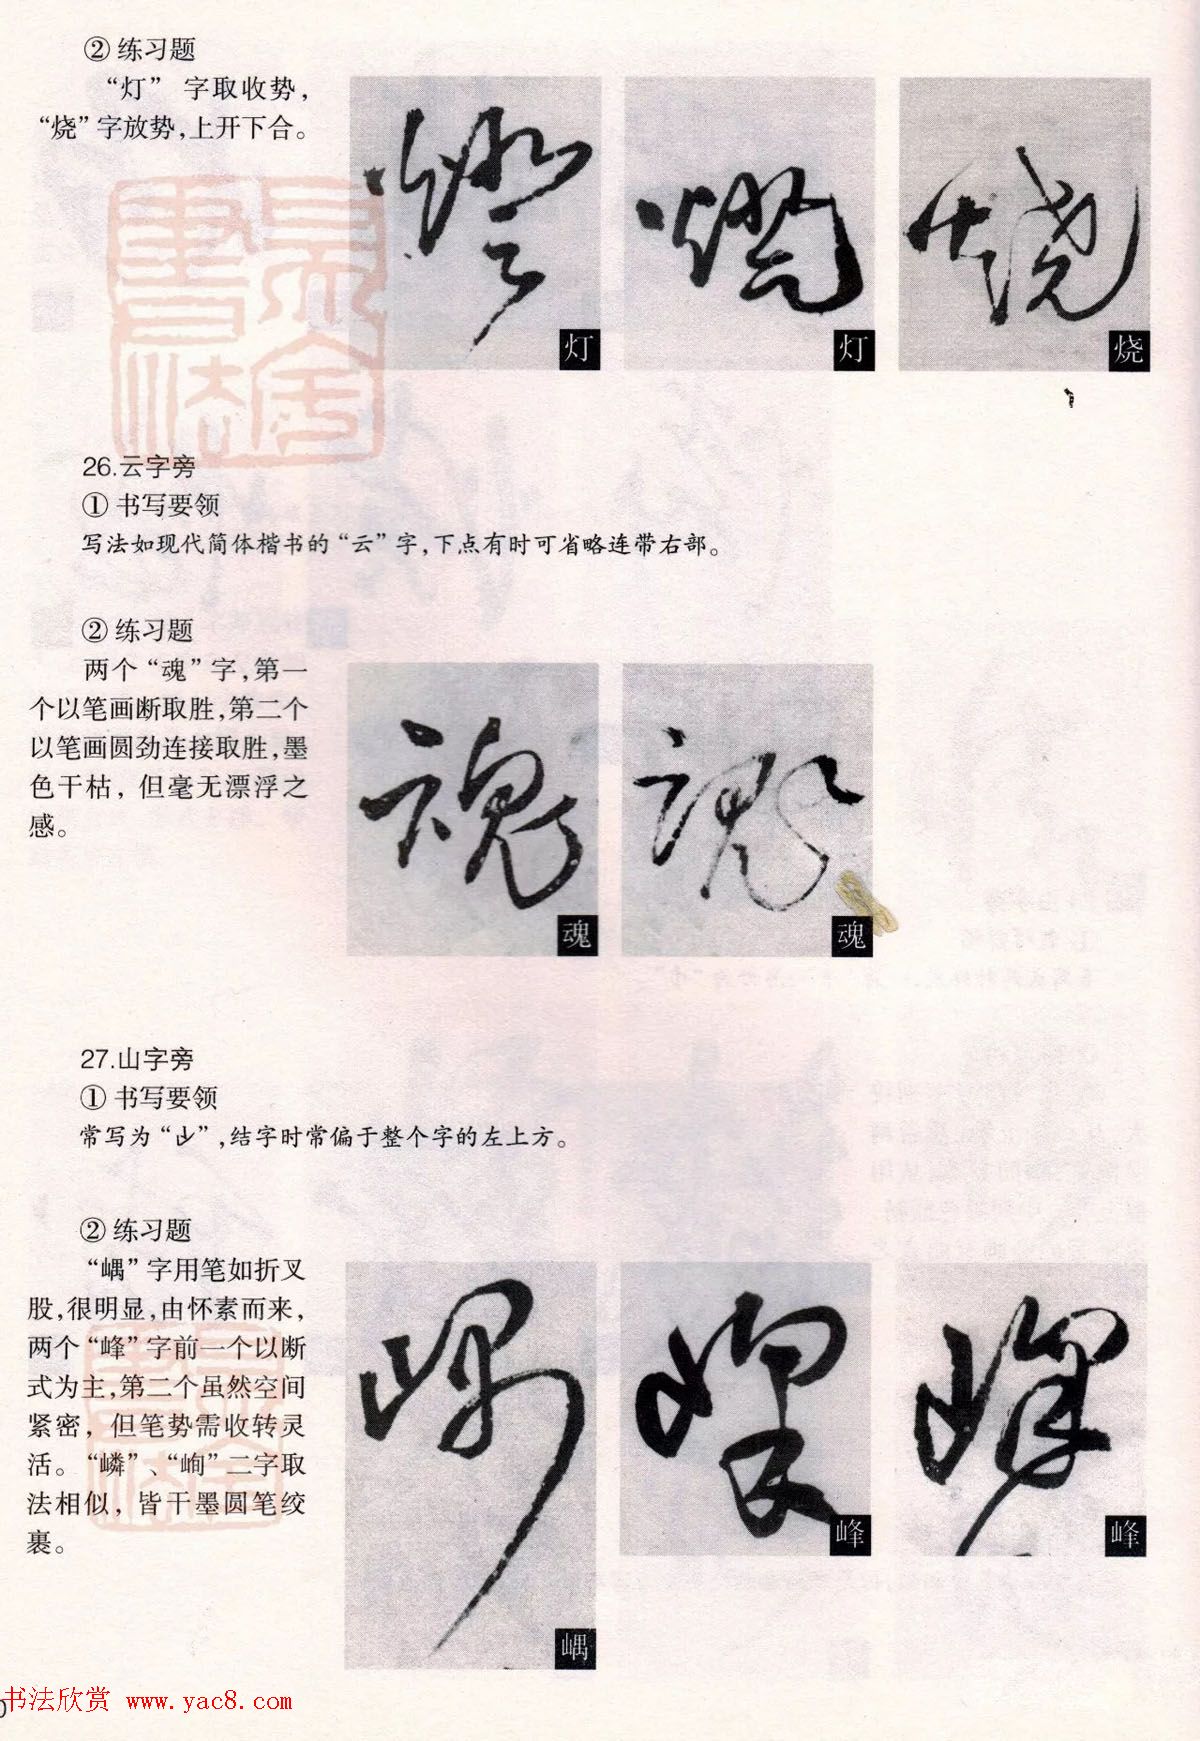 ② 练习题
“灯” 字取收势，
“烧”字放势，上开下合。
灯
灯
烧
26.云字旁
① 书写要领
写法如现代简体楷书的“云”字，下点有时可省略连带右部。
② 练习题
两个“魂”字，第一
个以笔画断取胜，第二个
以笔画圆劲连接取胜，墨
色干枯，但毫无漂浮之
感。
魂
魂
27.山字旁
① 书写要领
常写为“山”，结字时常偏于整个字的左上方。
② 练习题
“嵎”字用笔如折叉
股，很明显，由怀素而来，
两个“峰”字前一个以断
式为主，第二个虽然空间
紧密，但笔势需收转灵
活。“嶙”、“峋”二字取
法相似，皆干墨圆笔绞
裹。
嵎
峰
峰
书法欣赏 www.yac8.com